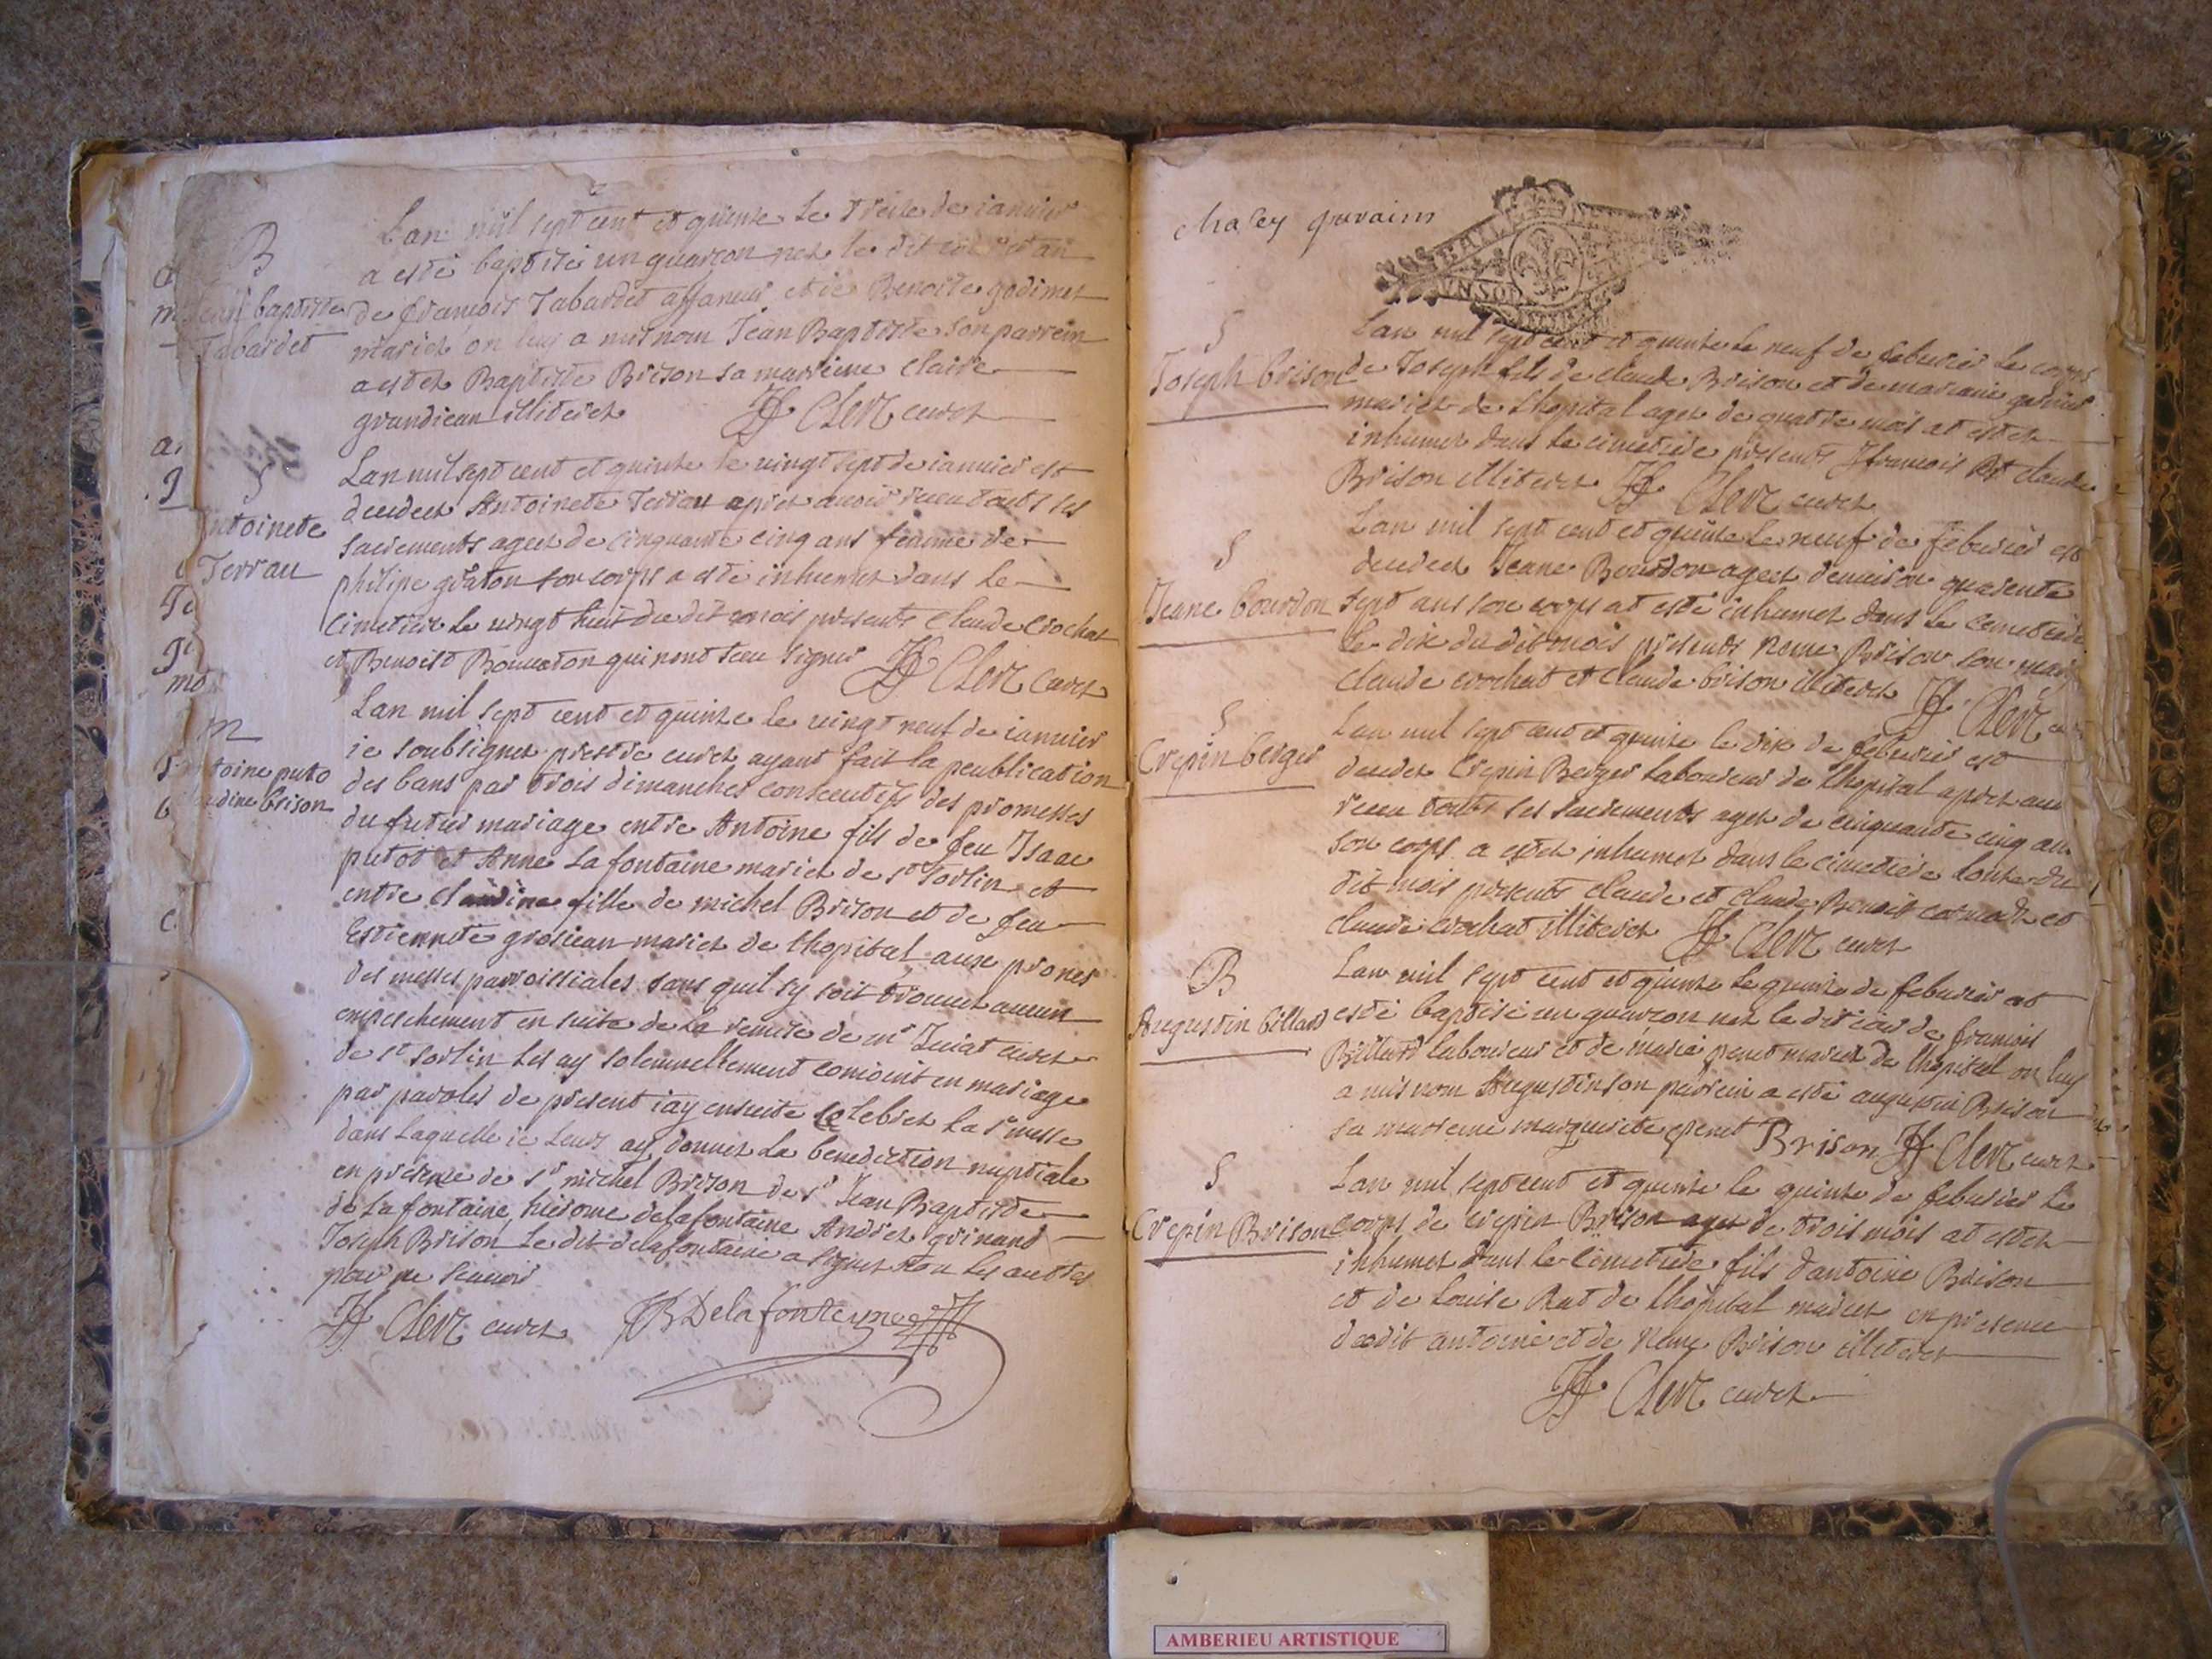 B
Jean baptiste
Tabardet
Lan mil sept cent et quinze le treize de ianvier
a esté baptisé un guarcon nez le dit iour et an
de francois Tabardet affaneur et de Benoite godimet
mariez on luy a mis nom Jean Baptiste son parrein
a estez Baptiste Brison sa marreine Claire
grandiean illiterez JF Clerc curez
S
Antoinete
Terrau
Lan mil sept cent et quinze le vingt sept de ianvier est
decedeez Antoinete Terrau aprez avoir receu touts ses
sacrements ageez de cinquante cinq ans femme de
philipe graton son corps a esté inhumez dans le
cimetiere le vingt huit du dit mois presents Claude Crochat
et Benoist Bouvaton qui nont sceu signer JF Clerc curez
M
Antoine puto
Claudine brison
Lan mil sept cent et quinze le vingt neuf de ianvier
ie soubsignez prestre curez ayant fait la peublication
des bans par trois dimanches consecutifs des promesses
du futur mariage entre Antoine fils de feu Isaac
putod et Anne La fontaine mariez de st Sorlin et
entre claudine fille de michel Brison et de feu
Estiennete grosiean mariez de lhopital aux prones
des messes parroissiales sans quil sy soit trouvez aucun
empeschement en suite de la remise de mr Juiat curez
de st sorlin les ay solemnellement conioint en mariage
par paroles de present iay ensuite celebrez la se messe
dans laquelle ie leurs ay donnez la benediction nuptiale
en presence de sr michel Brison de sr Jean Baptiste
de La fontaine, hierome delafontaine Andrez grinand
Joseph Brison le dit delafontaine a signez non les autres
pour ne scavoir
JF Clerc curez JB Delafonteyne
chaley parain
S
Joseph brison
Lan mil sept cent et quinze le neuf de feburier le corps
de Joseph fils de claude Brison et de mariane
mariez de lhopital agez de quatre mois at estez
inhumez dans le cimetiere presents francois Rt claude
Brison illiterez JF Clerc curez
S
Jeane bourdon
Lan mil sept cent et quinze le neuf de feburier est
decedeez Jeane Bourdon ageez denuiron quarente
sept ans son corps at esté inhumez dans le cemetiere
le dix du dit mois presents Reine Brison son mary
claude crochat et claude brison illiterez JF Clerc
S
Crepin berger
Lan mil sept cent et quinze le dix de feburier est
decedez Crepin Berger laboureur de lhopital aprez
receu touts ses sacrements agez de cinquante cinq ans
son corps a estez inhumez dans le cimetiere lonze du
dit mois presents claude et claude Benoit et
claude crochat illiterez JF Clerc curez
B
Augustin billard
Lan mil sept cent et quinze le quinze de feburier at
esté baptisé un guarcon nez le dit iour de francois
Billard laboureur et de marie penet mariez de lhopital on luy
a mis nom Augustin son parrein a esté augustin Brison
sa marreine marguerite penet Brison JF Clerc curez
S
Crepin Brison
Lan mil sept cent et quinze le quinze de feburier le
corps de crepin Brison agez de trois mois at estez
inhumez dans le cimetiere fils dantoine Brison
et de Louise Rat de lhopital mariez en presence
dudit antoine et de Reine Brison illiterez
JF Clerc curez
AMBERIEU ARTISTIQUE